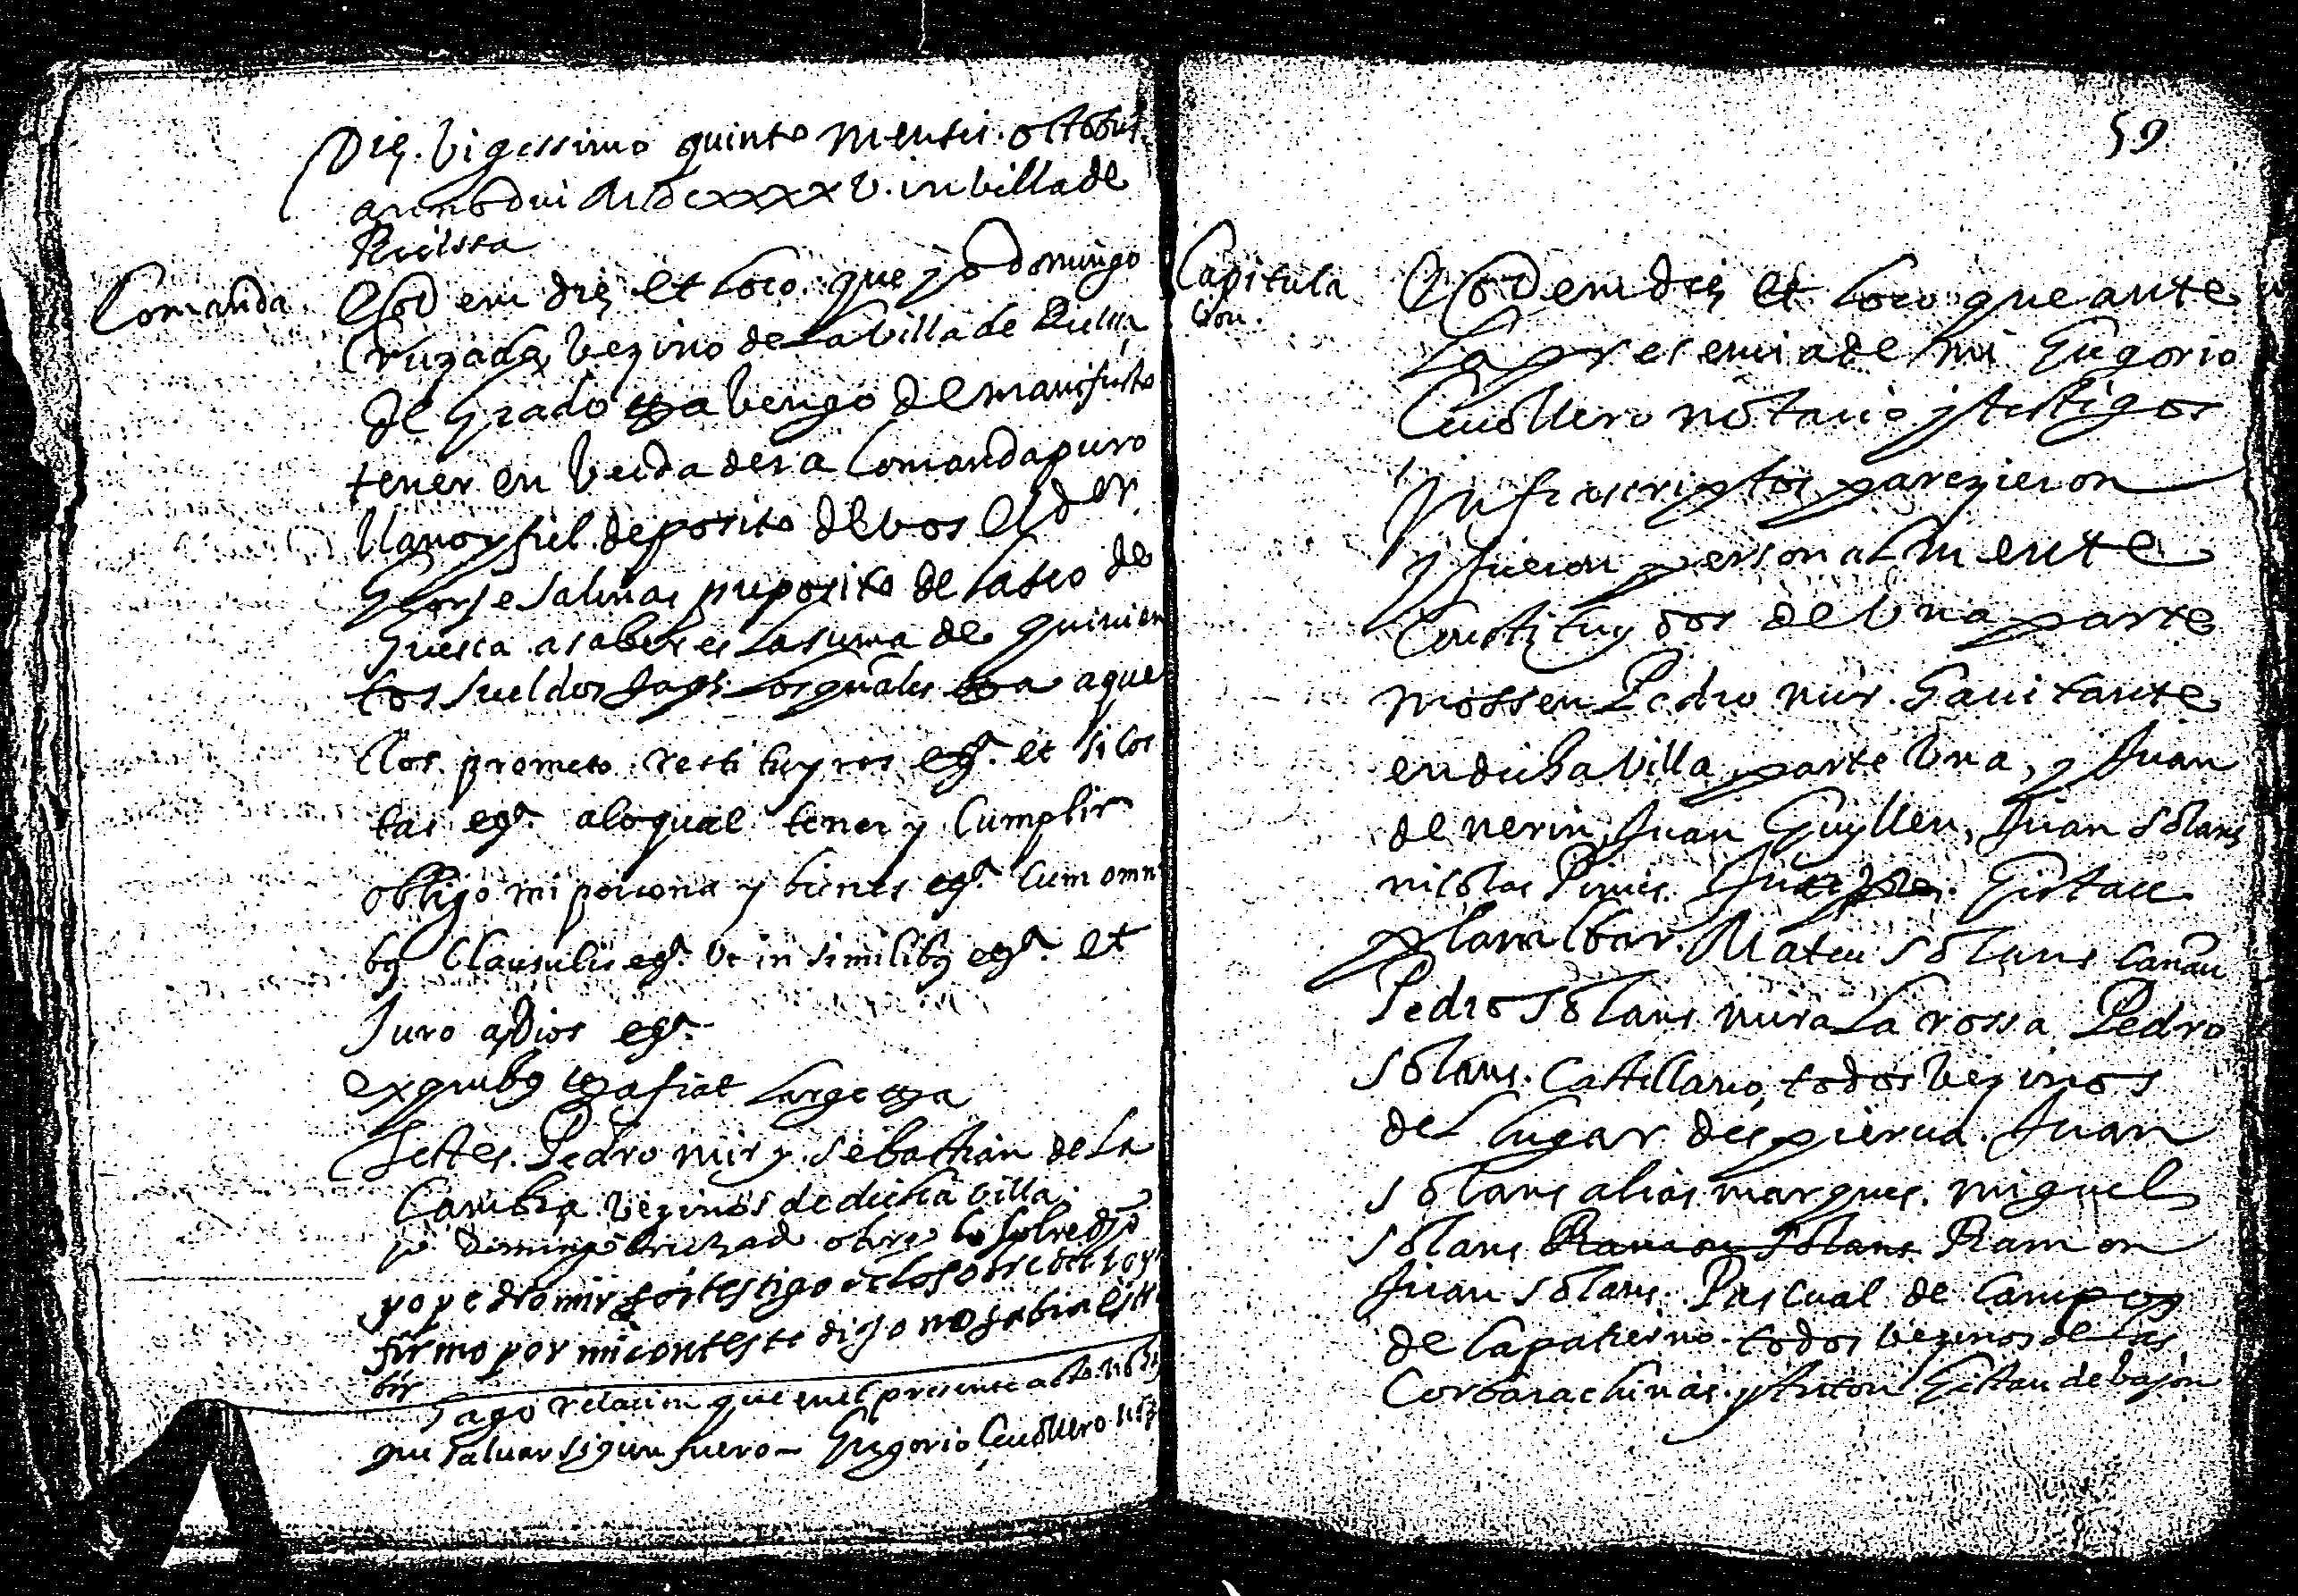 Die. bigessimo quinto mensis. octobris
anno dni MDCXXXXV. in billa de
Comanda.
Eod em die et loco. que yo Domingo
Cruzada bezino de la billa de
de grado &a bengo de manifiesto
tener en berdadera Comanda puro
llano y fiel deposito de bos el
Jorje Salinas preposito de la seo de
huesca a saber es la suma de quinien
tos sueldos jaqs. los quales &a aque
llos. prometo restituyros eza. et si cos
tas eza. a lo qual tener y Cumplir
obligo mi persona y bienes eza. Cum omni
bus Clausulis eza. bt in similibus eza. et
Juro a Dios eza.
ex quibus &a fiat large &a
testes. Pedro mir y. sebastian de la
Cambra bezinos de dicha billa.
yo domingo cruzada otorgo lo sobre dho
yo pedro mir soi testigo de lo sobredicho y
firmo por mi conteste dijo no sabia escri
bir
hago relacion que en el presente acto no hay
que saluar sigun fuero
59
Capitula
cion.
Eod em die et loco que ante
la presencia de mi Gregorio
notario y testigos
Infrascriptos parezieron
y fueron personalmente
Constituydos de bna parte
mossen Pedro mir. hauitante
en dicha billa parte bna, y Juan
de nerin, Juan Guyllen, Juan Solans
nicolas
Mateu Solans
Pedro Solans mira la rossa Pedro
Solans. Castillano, todos bezinos
del lugar despierua. Juan
Solans alias marques. miguel
Solans Ramon Solans Ramon
Juan Solans. Pascual de Campo
de Capatierno. todos bezinos de las
y Anton Gistau de bajon